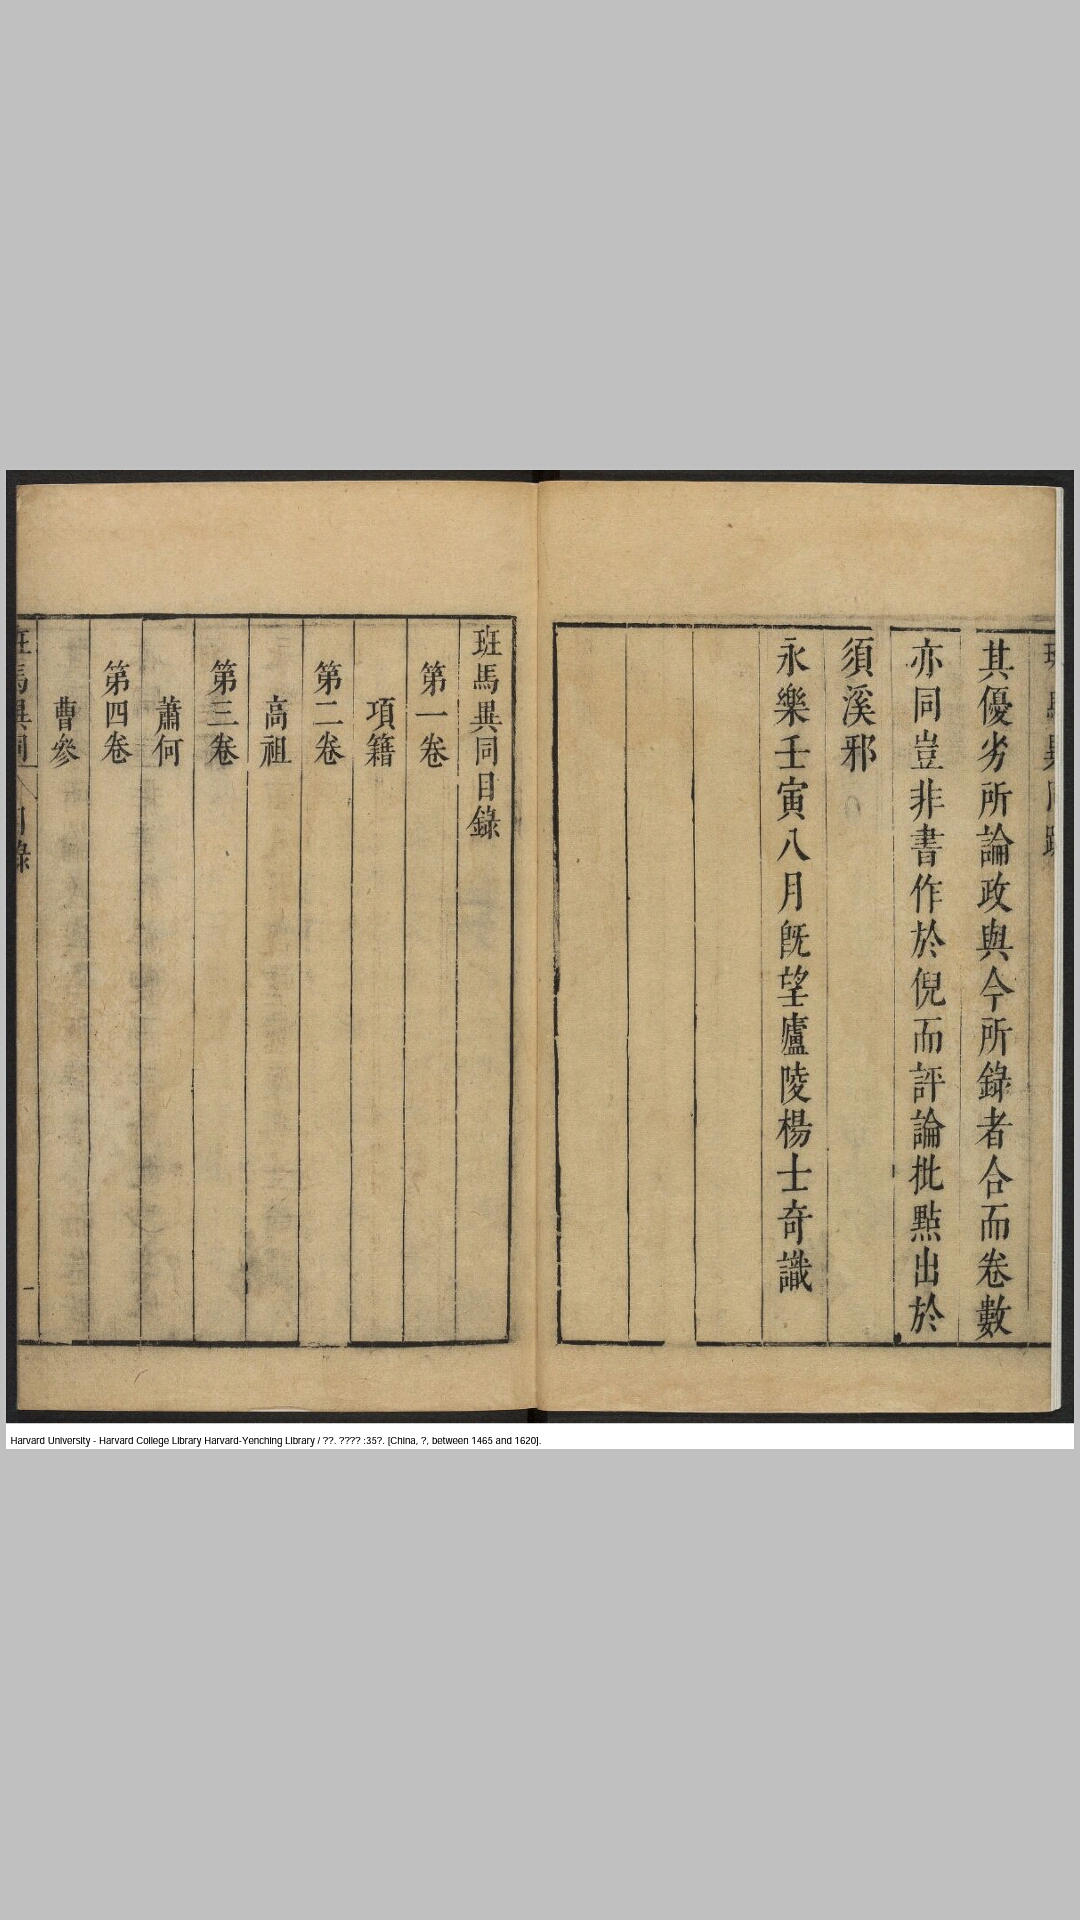 其優劣所論政與今所錄者合而卷數
亦同豈非書作於倪而評論批點出於
須溪邪
永樂壬寅八月旣望廬陵楊士奇識
班馬異同目錄
第一卷
項籍
第二卷
高祖
第三卷
蕭何
第四卷
曹參
班馬異同 目錄 一
Harvard University - Harvard College Library Harvard-Yenching Library / ??. ???? :35?. [China, ?, between 1465 and 1620].